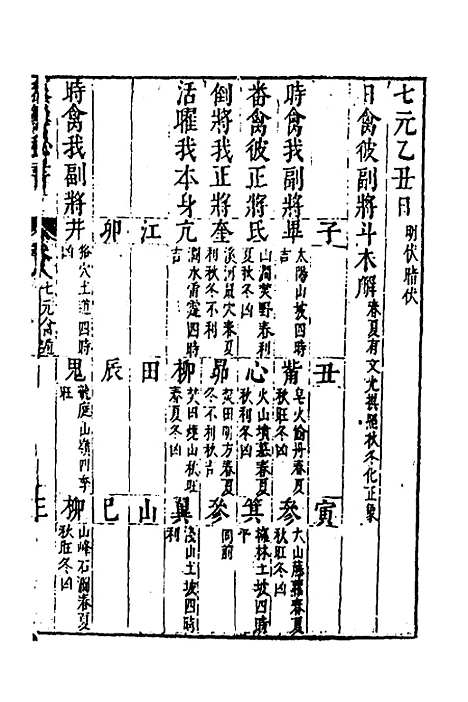 七元乙丑日 明伏暗伏
日禽彼副將斗木解 春夏有文尤 秋冬化正象
子 丑 寅
時禽我副將畢 太陽山坡四時吉 觜 皂火 丹春夏秋旺冬凶 參 大山藤 春夏秋旺冬凶
番禽彼正將氐 山澗芙野春利夏秋凶 心 火山墳墓春夏秋利冬凶 箕 林土坡四時平
倒將我正將奎 溪河 穴春夏利秋冬不利 昴 焚田明方春夏冬不利秋吉 參 同前
活曜我本身亢 澗水雷霆四時吉 柳 焚田燒山秋旺春夏冬凶 翼 淺山土坡四時利
江 田 山
卯 辰 巳
時禽我副將井 谷穴土道四時凶 鬼 龍庭山嶺四季旺 柳 山峰石澗春夏秋旺冬凶
卷八 七元合遁